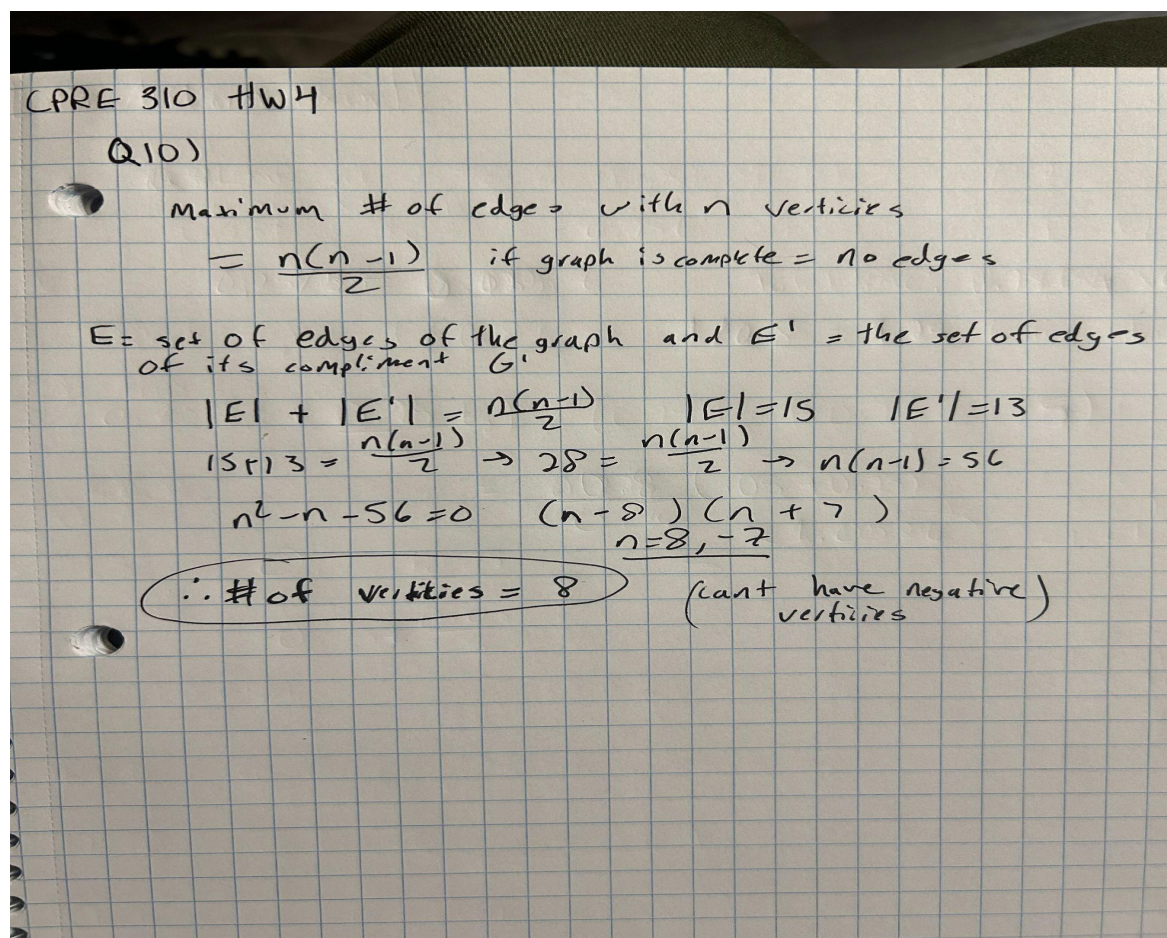 CPRE 310 HW4
Q10)
Maximum # of edges with n verticies
= n(n-1)/2 if graph is complete = no edges
E = set of edges of the graph and E' = the set of edges
of its compliment G'
|E| + |E'| = n(n-1)/2 |E|=15 |E'|=13
15+13 = n(n-1)/2 → 28 = n(n-1)/2 → n(n-1) = 56
n²-n-56=0 (n-8)(n+7)
n=8, -7
∴ # of verticies = 8 (cant have negative
verticies)